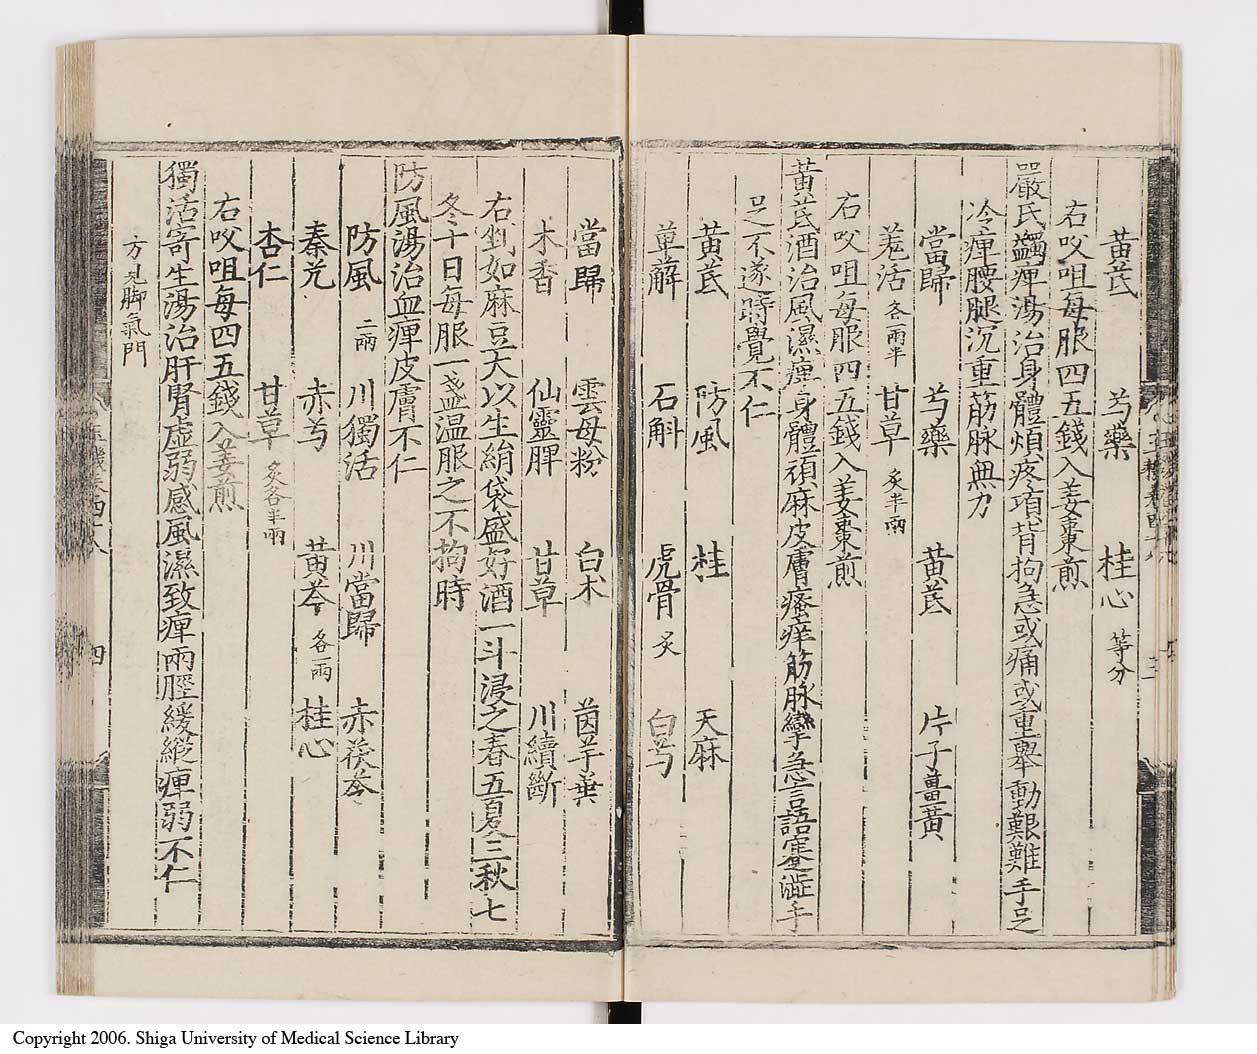 黄芪 芍藥 桂心 等分
右㕮咀每服四五錢入姜棗煎
嚴氏蠲痺湯治身體煩疼項背拘急或痛或重舉動艱難手足
冷痺腰腿沉重筋脉無力
當歸 芍藥 黄芪 片子薑黄
羗活 各兩半 甘草 炙半兩
右㕮咀每服四五錢入姜棗煎
黄芪酒治風濕痺身體頑麻皮膚瘙痒筋脉攣急言語蹇澁手
足不遂時覺不仁
黄芪 防風 桂 天麻
萆薢 石斛 虎骨 炙 白芍
當歸 雲母粉 白术 茵芋葉
木香 仙靈脾 甘草 川續斷
右剉如麻豆大以生絹袋盛好酒一斗浸之春五夏三秋七
冬十日每服一盞温服之不拘時
防風湯治血痺皮膚不仁
防風 二兩 川獨活 川當歸 赤茯苓
秦艽 赤芍 黄芩 各一兩 桂心
杏仁 甘草 炙各半兩
右㕮咀每四五錢入姜煎
獨活寄生湯治肝腎虚弱感風濕致痺兩脛緩縱痺弱不仁
方見脚氣門
四